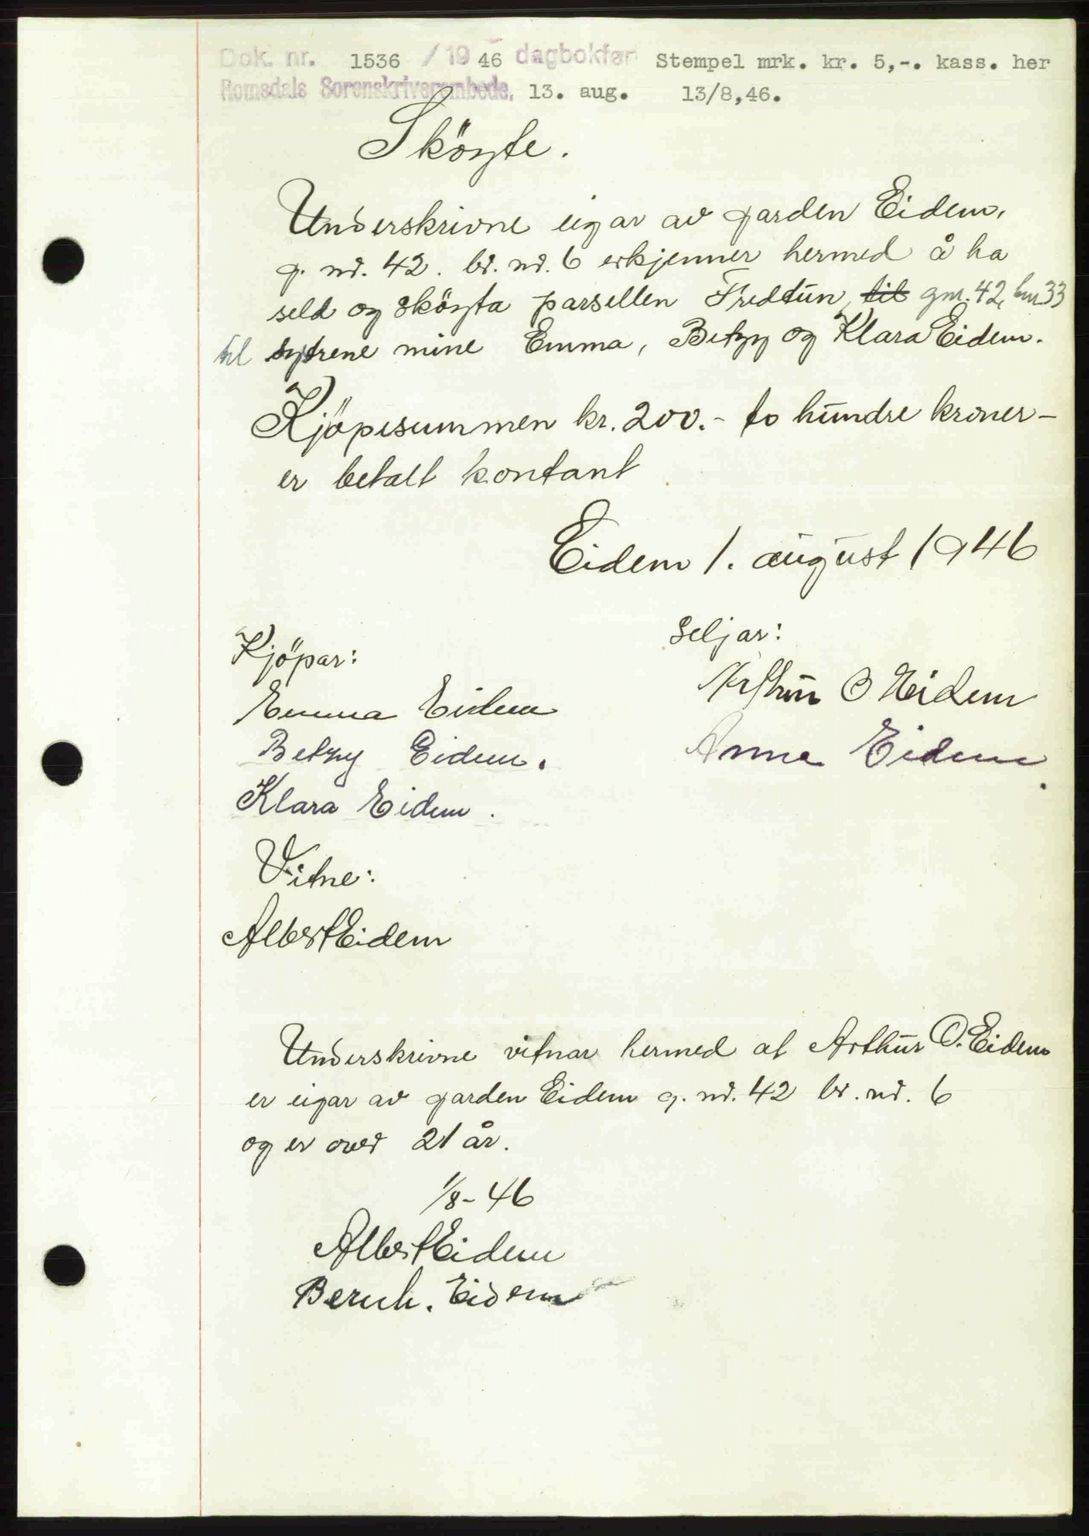 Dok. nr. 1536 / 1946 dagbokført Stempel mrk. kr. 5,-. kass. her
Romsdals Sorenskriverembede, 13. aug. 13/8,46.
Sköyte.
Underskrivne eigar av garden Eidem,
g. nr. 42. br. nr. 6 erkjenner hermed å ha
seld og sköyta parsellen Fredtun, til gnr. 42, bnr 33
til systrene mine Emma, Betzy og Klara Eidem.
Kjöpesummen kr. 200.- to hundre kroner-
er betalt kontant
Eidem 1. august 1946
Kjöpar:
Seljar:
Emma Eidem
Arthur O Eidem
Betzy Eidem.
Anna Eidem.
Klara Eidem.
Vitne:
Albert Eidem
Underskrivne vitnar hermed at Arthur O. Eidem
er eigar av garden Eidem g. nr. 42 br. nr. 6
og er over 21 år.
1/8-46
Albert Eidem
Bernh. Eidem